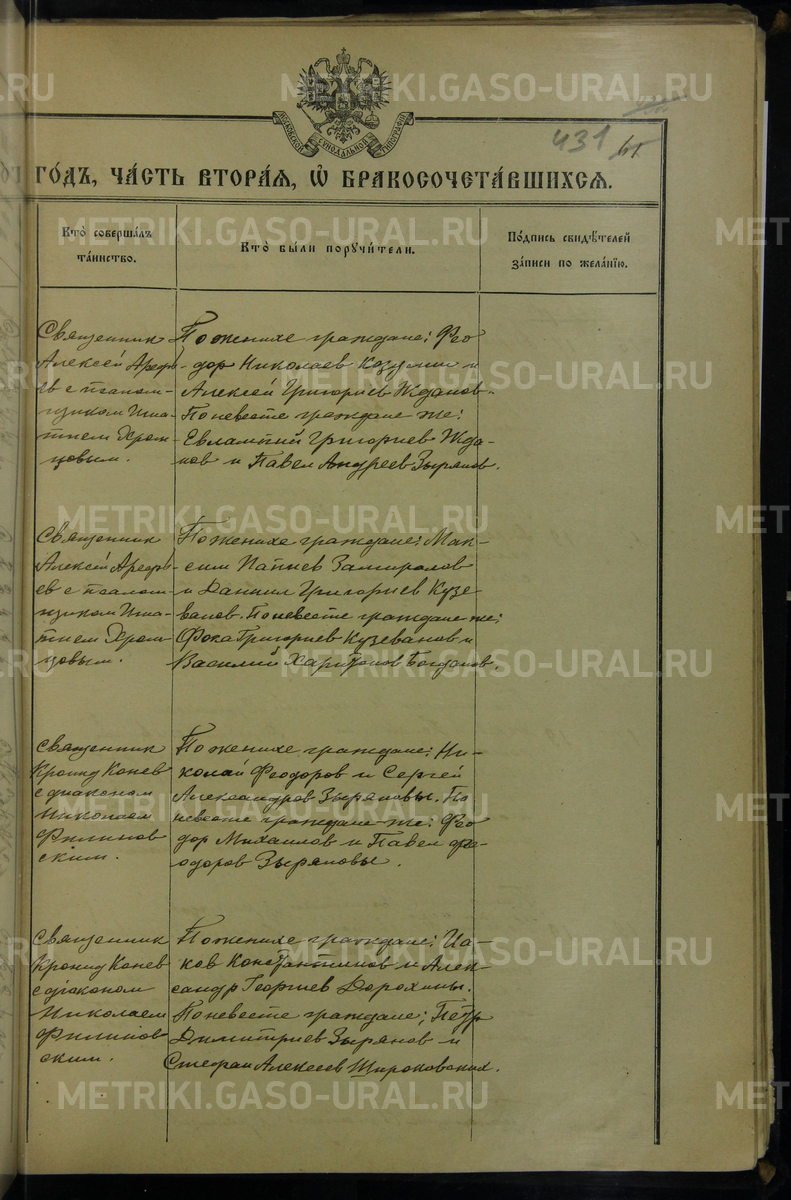 МОСКОВСКОЙ СѴНОДАЛЬНОЙ ТИПОГРАФІИ
431
го́дъ, ча́сть втора́ѧ, ѡ҆ бракосочета́вшихсѧ.
Кто̀ соверша́лъ
та́инство.
Кто̀ бы́ли порꙋчи́тели.
По́дпись свидѣ́телей
за́писи по жела́нїю.
Священник
Алексей Арефь-
ев с псалом-
щиком Игна-
тием Хром-
цовым.
По женихе граждане: Фео-
дор Николаев и
Алексей Григориев Жданов.
По невесте граждане же:
Евлампий Григориев Жда-
нов и Павел Андреев Зырянов.
Священник
Алексей Арефь-
ев с псалом-
щиком Игна-
тием Хром-
цовым.
По женихе граждане: Мак-
сим Замиралов
и Даниил Григориев Кузе-
ванов. По невесте граждане же:
Фока Григориев Кузеванов и
Василий Харитонов Богданов.
Священник
Кронид Конев
с диаконом
Николаем
Филинов-
ским.
По женихе граждане: Ни-
колай Феодоров и Сергей
Александров Зыряновы. По
невесте граждане же: Фео-
дор Михаилов и Павел Фе-
одоров Зыряновы.
Священник
Кронид Конев
с диаконом
Николаем
Филинов-
ским.
По женихе граждане: Иа-
ков Константинов и Алек-
сандр Георгиев Дорохины.
По невесте граждане: Петр
Димитриев Зырянов и
Стефан Алексеев Широковских.
METRIKI.GASO-URAL.RU